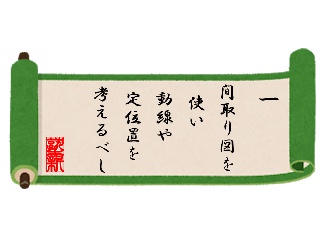 一
間取り図を
使い
動線や
定位置を
考えるべし